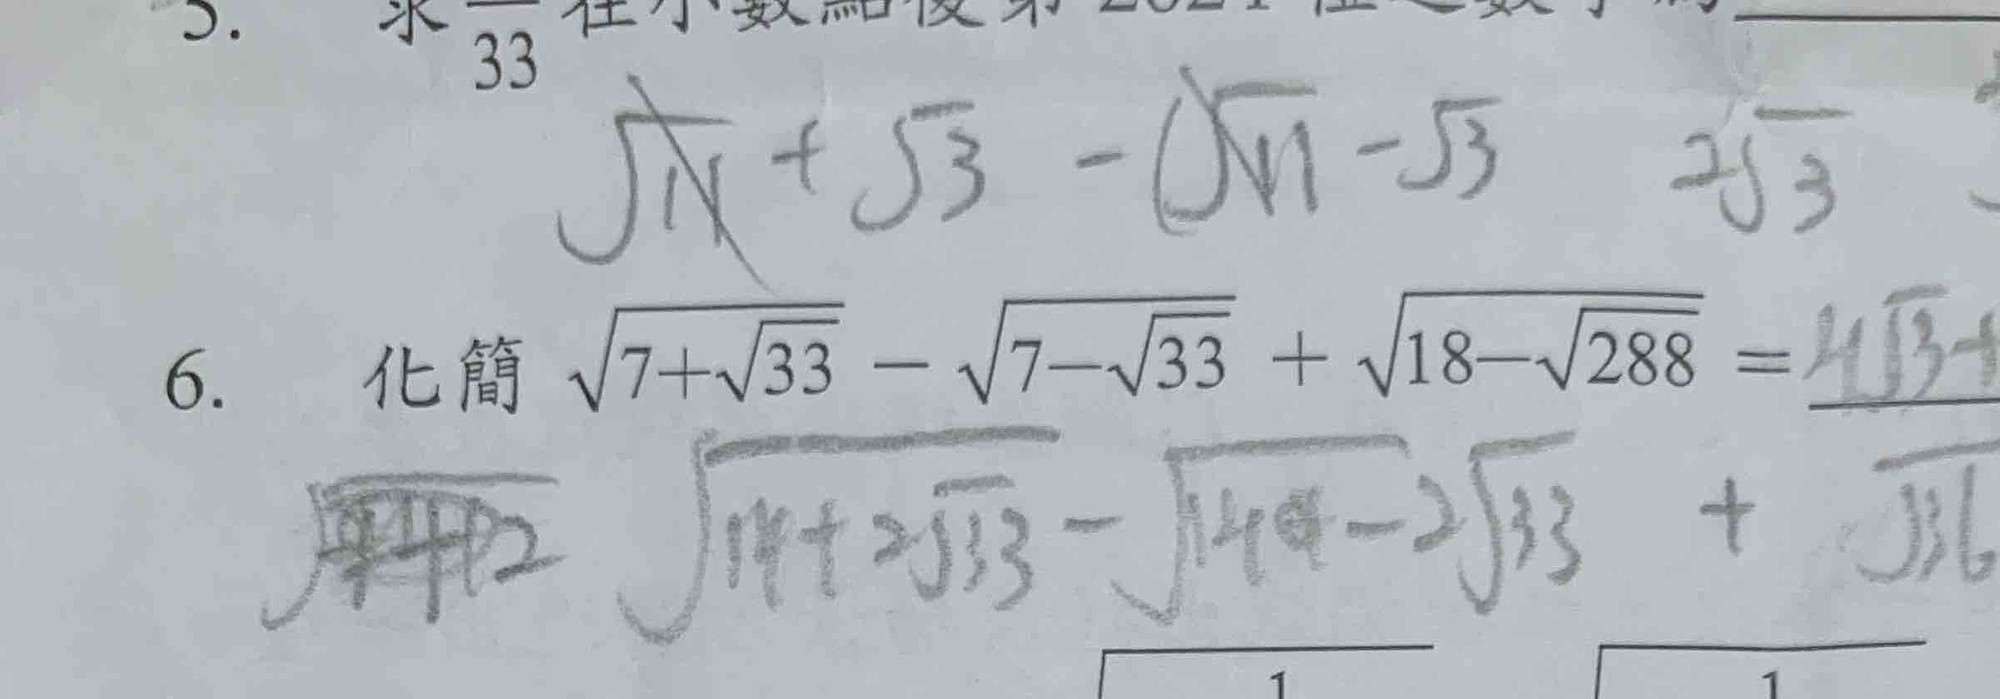 5. 求 33 在小數點後第 2024 位之數字為
√11 + √3 - (√11 - √3 2√3
6. 化簡 √(7+√33) − √(7−√33) + √(18−√288) = 4√3+
√(14+2√33) - √(14-2√33) + √36
1 1